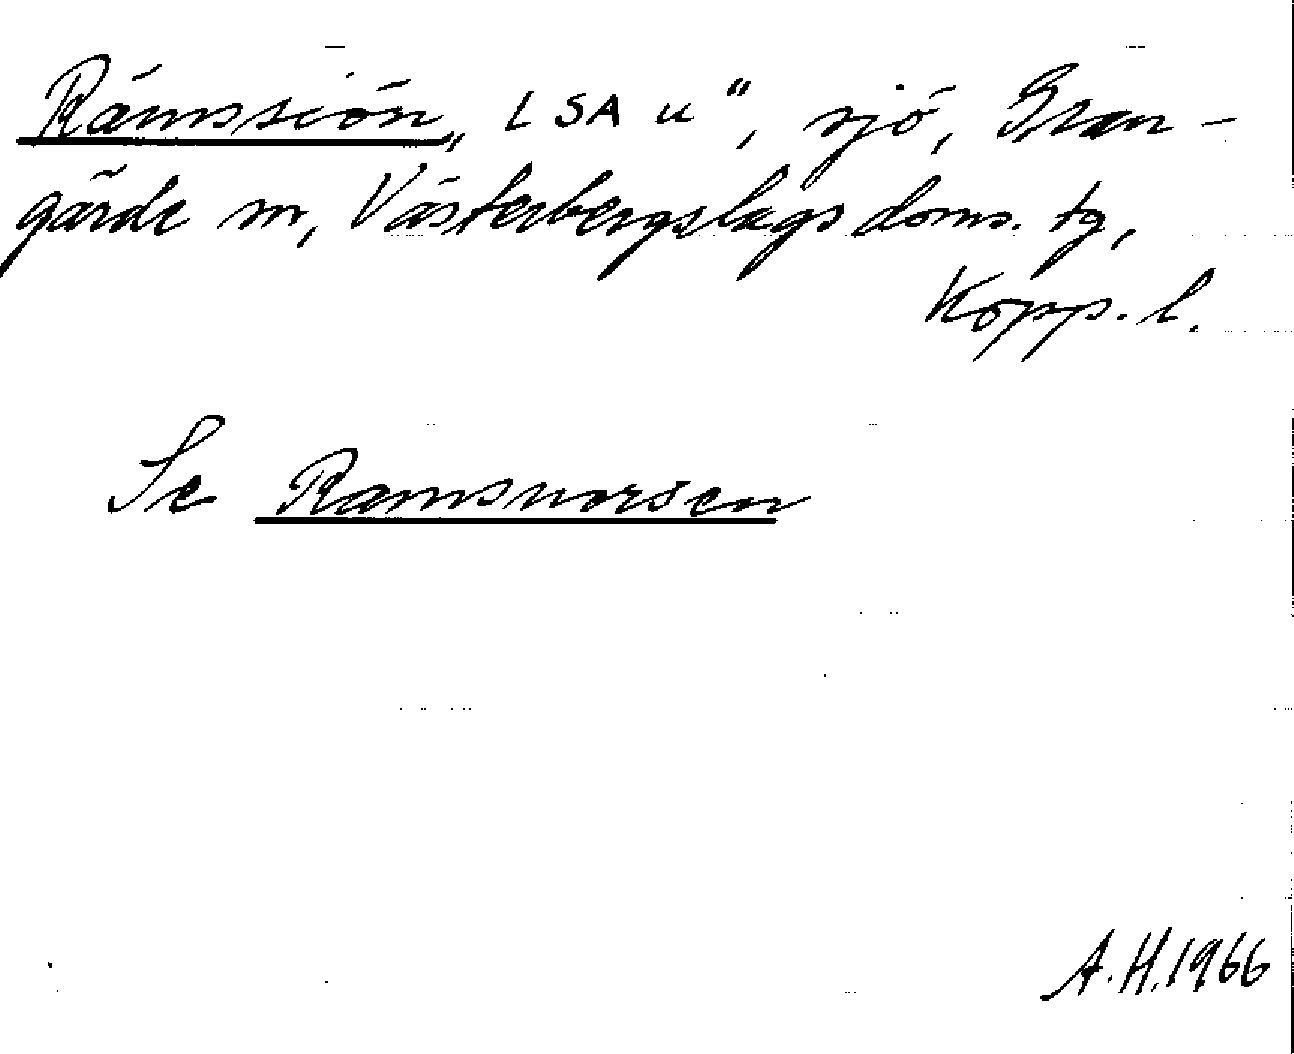 Rämssiön, „LSA u", sjö, Gran-
gärde sn, Västerbergslags doms. tg,
Kopp. l.
Se Ramsnorsen
A.H.1966